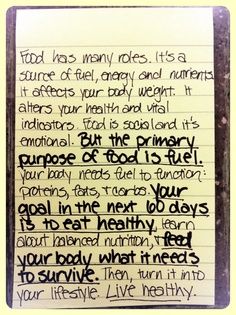 Food has many roles. It's a
source of fuel, energy and nutrients.
It affects your body weight. It
alters your health and vital
indicators. Food is social and it's
emotional. But the primary
purpose of food is fuel.
your body needs fuel to function:
proteins, fats, + carbs. your
goal in the next 60 days
is to eat healthy, learn
about balanced nutrition, + feed
your body what it needs
to survive. Then, turn it into
your lifestyle. Live healthy.